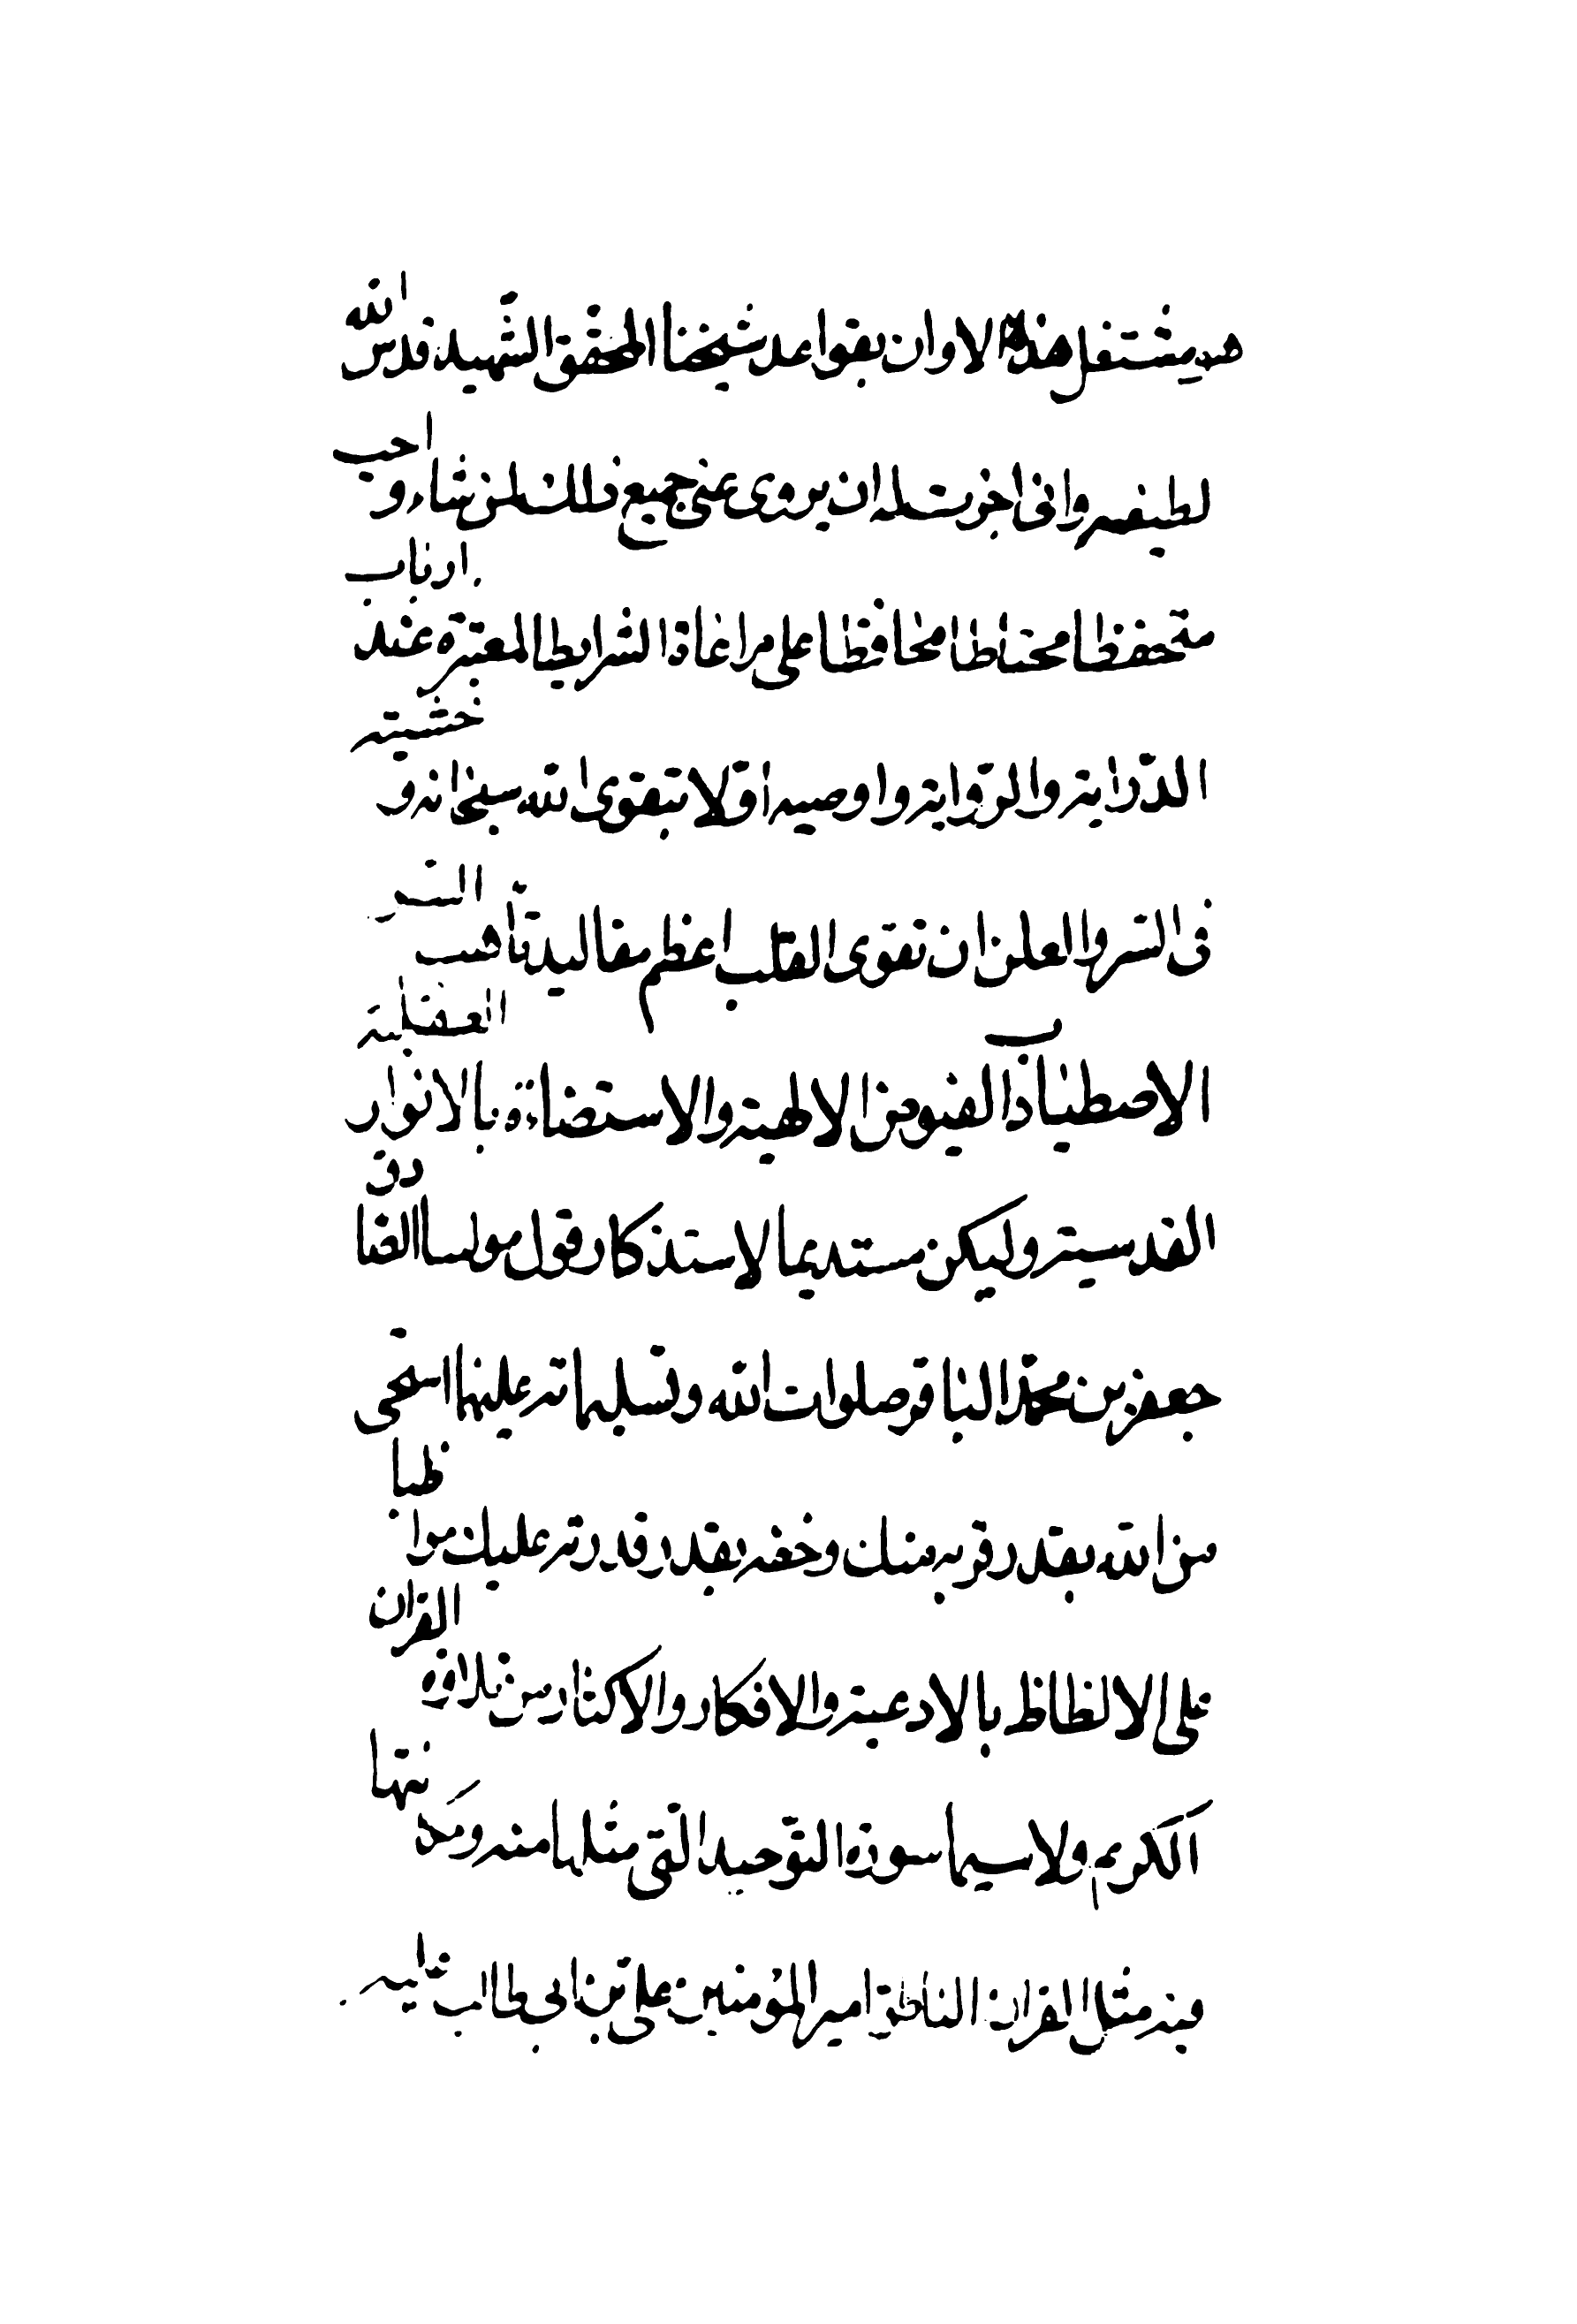 هو مشتغل هذه الاوان بقواعد شيخنا المحقق الشهيد قدس الله
لطيفه واني اجزت له ان يروي عني جميع ذلك لمن شاء و احب
متحفظا محتاطا محافظا على مراعاة الشرايط المعتبرة عند ارباب
الدراية والرواية واوصيه اولا بتقوى الله سبحانه و خشيته
في السر والعلن ان تقوى القلب اعظم مقاليد تأهب السر
الاصطياد الفيوض الالهية والاستضاءة بالانوار العقلية
القدسية وليكن مستديما لاستذكار قول مولينا الصادق
جعفر بن محمد الباقر صلوات الله وتسليماته عليهما استحى
من الله بقدر قربه منك وخفه بقدر قدرته عليك مواظبا
على الالظاظ بالادعية والاذكار والاكثار من تلاوة القران
الكريم ولا سيما سورة التوحيد التي مثلها منه ومكانتها
فيه مثل القران الناطق امير المؤمنين علي بن ابي طالب عليه